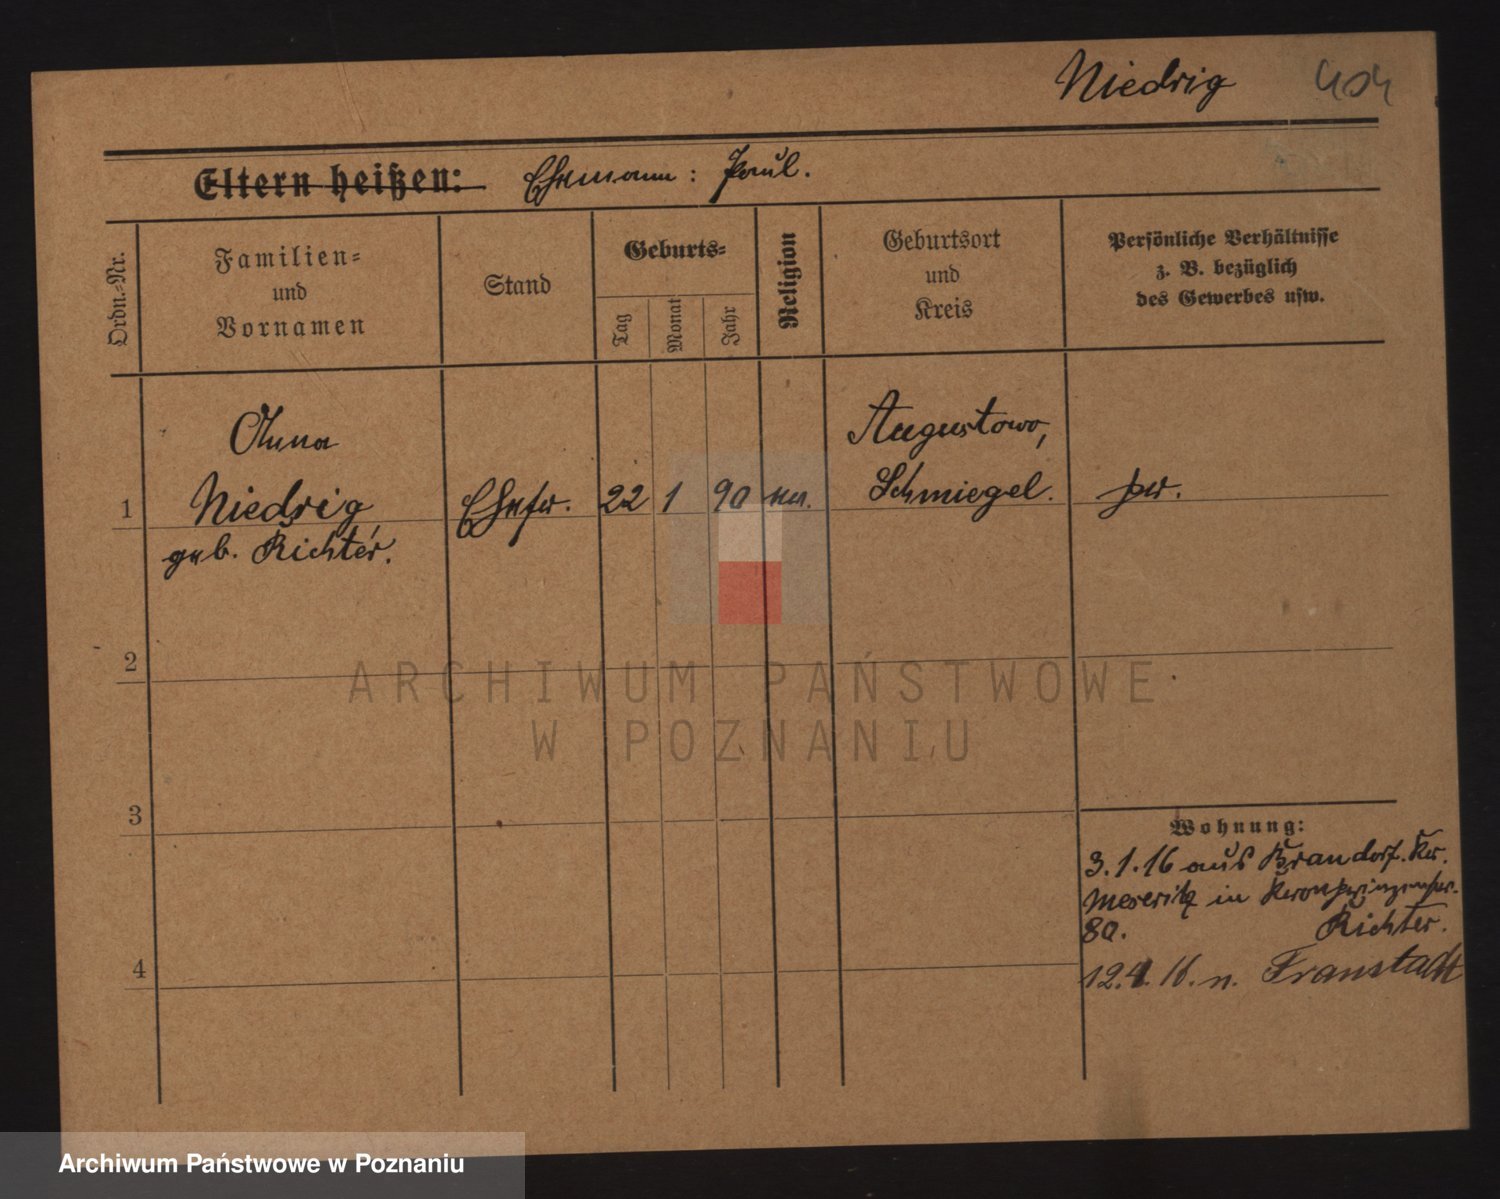 Niedrig 404
Eltern heißen: Ehemann: Paul.
Ordn.-Nr.
Familien-
und
Vornamen
Stand
Geburts-
Tag
Monat
Jahr
Religion
Geburtsort
und
Kreis
Persönliche Verhältnisse
z. B. bezüglich
des Gewerbes usw.
Anna
1 Niedrig Ehefr. 22 1 90 ev. Augustowo,
Schmiegel. pr.
geb. Richter.
2
ARCHIWUM PAŃSTWOWE
W POZNANIU
3
Wohnung:
3.1.16 aus Brandorf. Kr.
Meseritz in Kronprinzenstr.
80. Richter.
4
12.4.16. n. Fraustadt
Archiwum Państwowe w Poznaniu